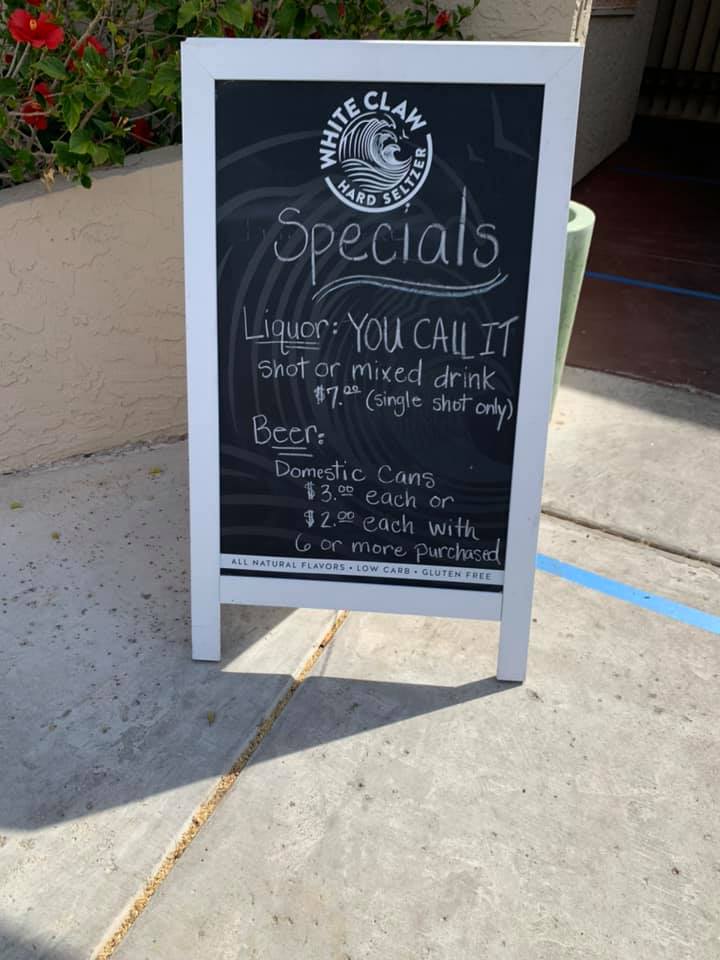 WHITE CLAW
HARD SELTZER
Specials
Liquor: YOU CALL IT
shot or mixed drink
$7.00 (single shot only)
Beer:
Domestic Cans
$3.00 each or
$2.00 each with
6 or more purchased
ALL NATURAL FLAVORS • LOW CARB • GLUTEN FREE